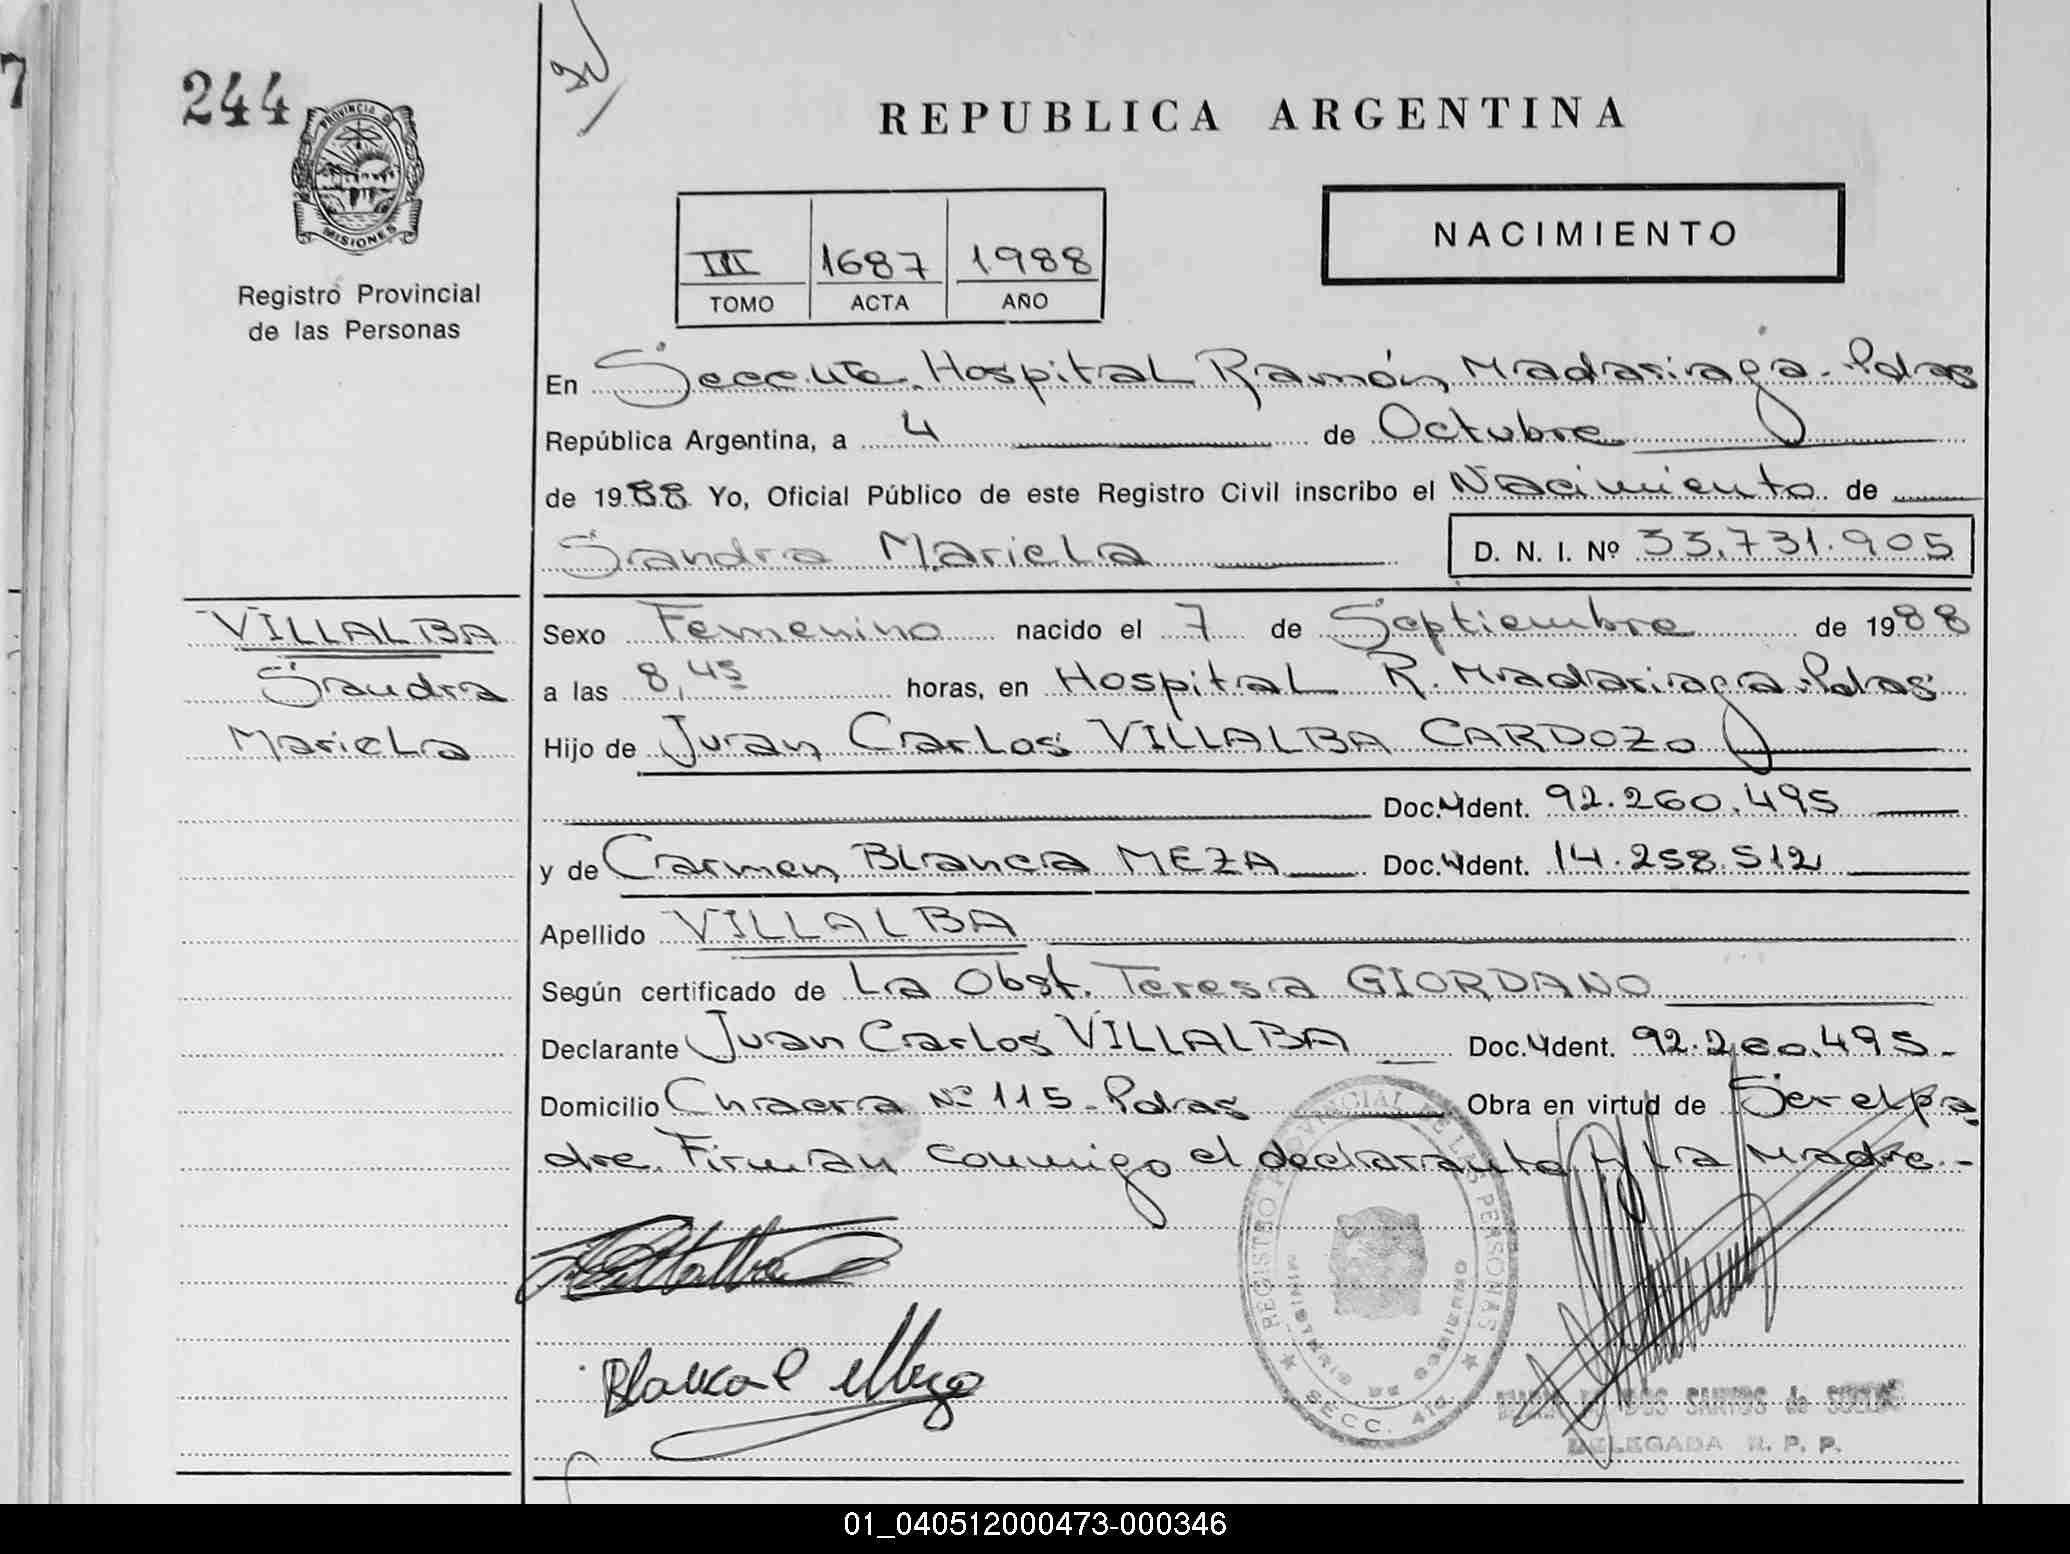 7
244
PROVINCIA D
MISIONES
Registro Provincial
de las Personas
REPUBLICA ARGENTINA
NACIMIENTO
III 1687 1988
TOMO ACTA AÑO
En Secc. Hospital Ramón Madariaga. Pdas
República Argentina, a 4 de Octubre
de 1988 Yo, Oficial Público de este Registro Civil inscribo el Nacimiento de
Sandra Mariela
D. N. I. Nº 33.731.905
VILLALBA
Sandra
Mariela
Sexo Femenino nacido el 7 de Septiembre de 1988
a las 8,45 horas, en Hospital R. Madariaga. Pdas
Hijo de Juan Carlos VILLALBA CARDOZO
Doc. Ident. 92.260.495
y de Carmen Blanca MEZA Doc. Ident. 14.258.512
Apellido VILLALBA
Según certificado de La Obst. Teresa GIORDANO
Declarante Juan Carlos VILLALBA Doc. Ident. 92.260.495.-
Domicilio Chacra Nº 115. Pdas Obra en virtud de Ser el pa
dre. Firman conmigo el declarante y La Madre.-
REGISTRO PROVINCIAL DE LAS PERSONAS
MINISTERIO DE GOBIERNO
SECC.
Blanca C Meza
DOS SANTOS de
DELEGADA R. P. P.
01_040512000473-000346